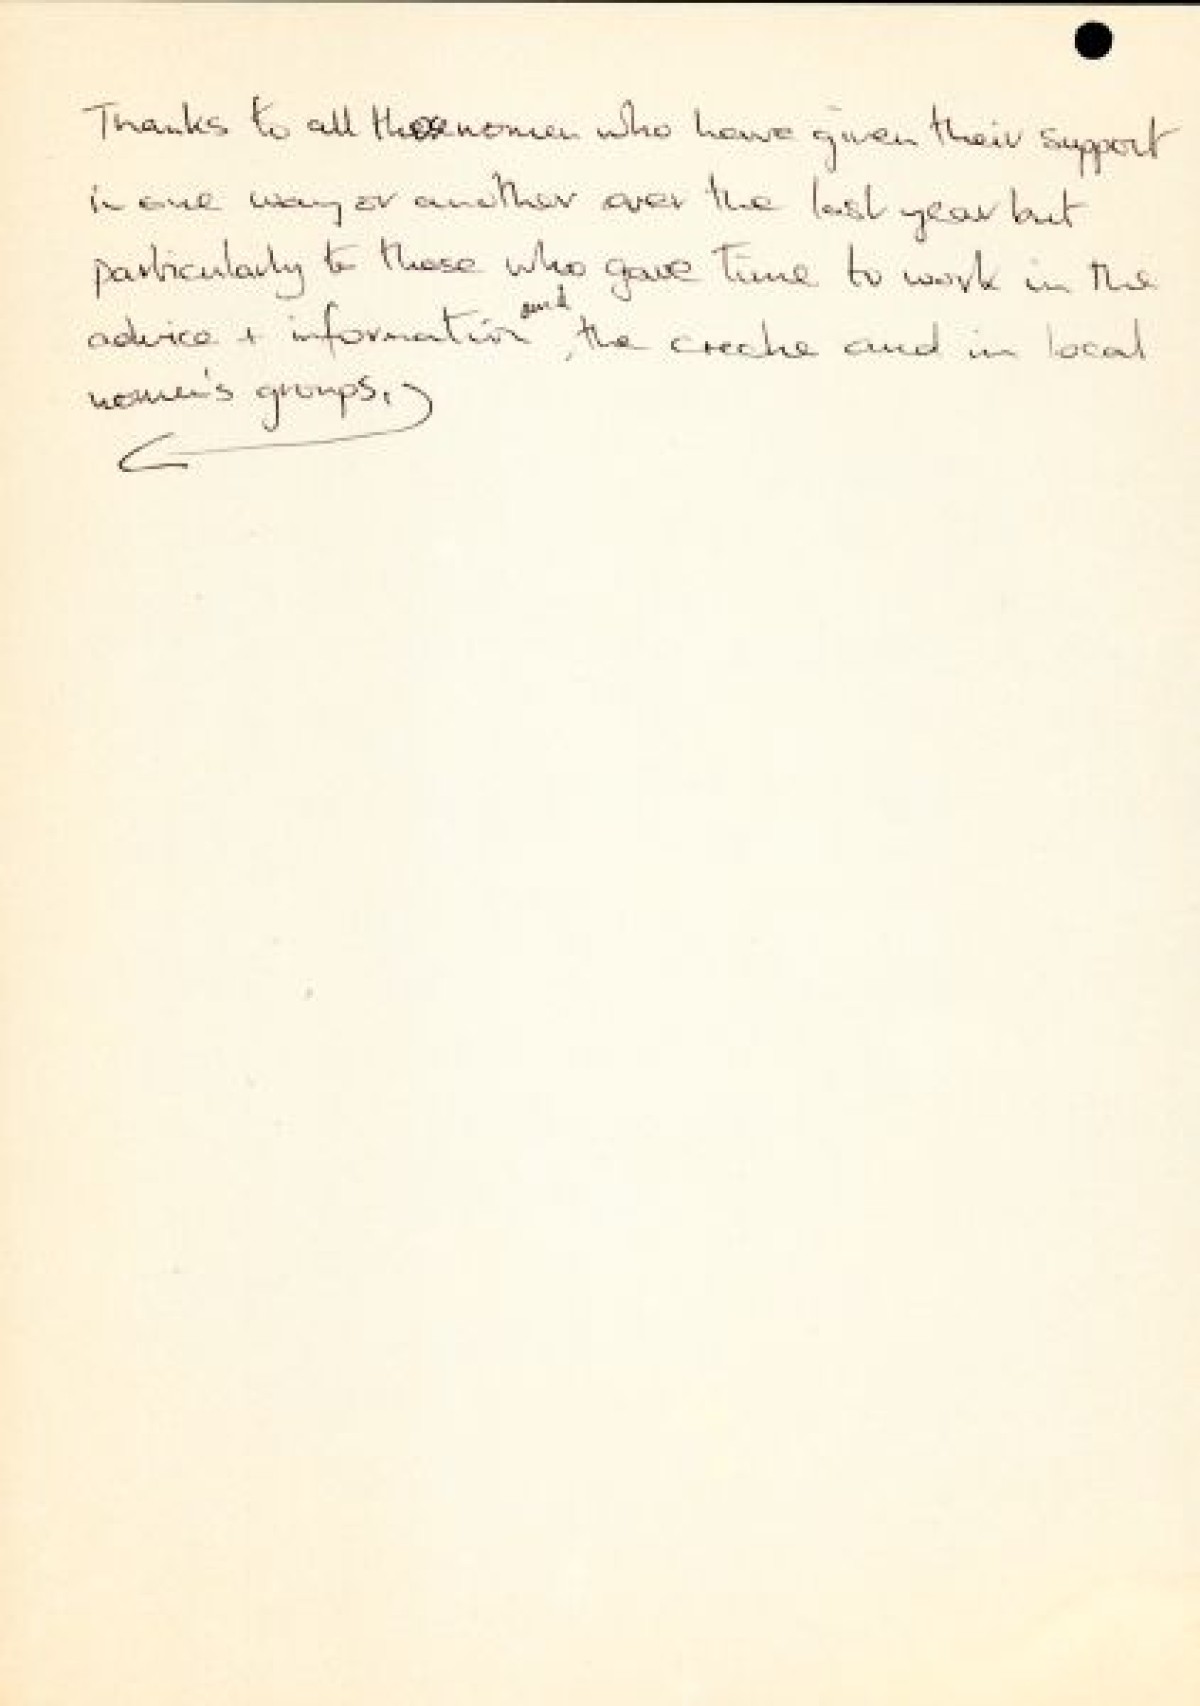 Thanks to all those women who have given their support
in one way or another over the last year but
particularly to those who gave time to work in the
advice + information and, the creche and in local
women's groups.